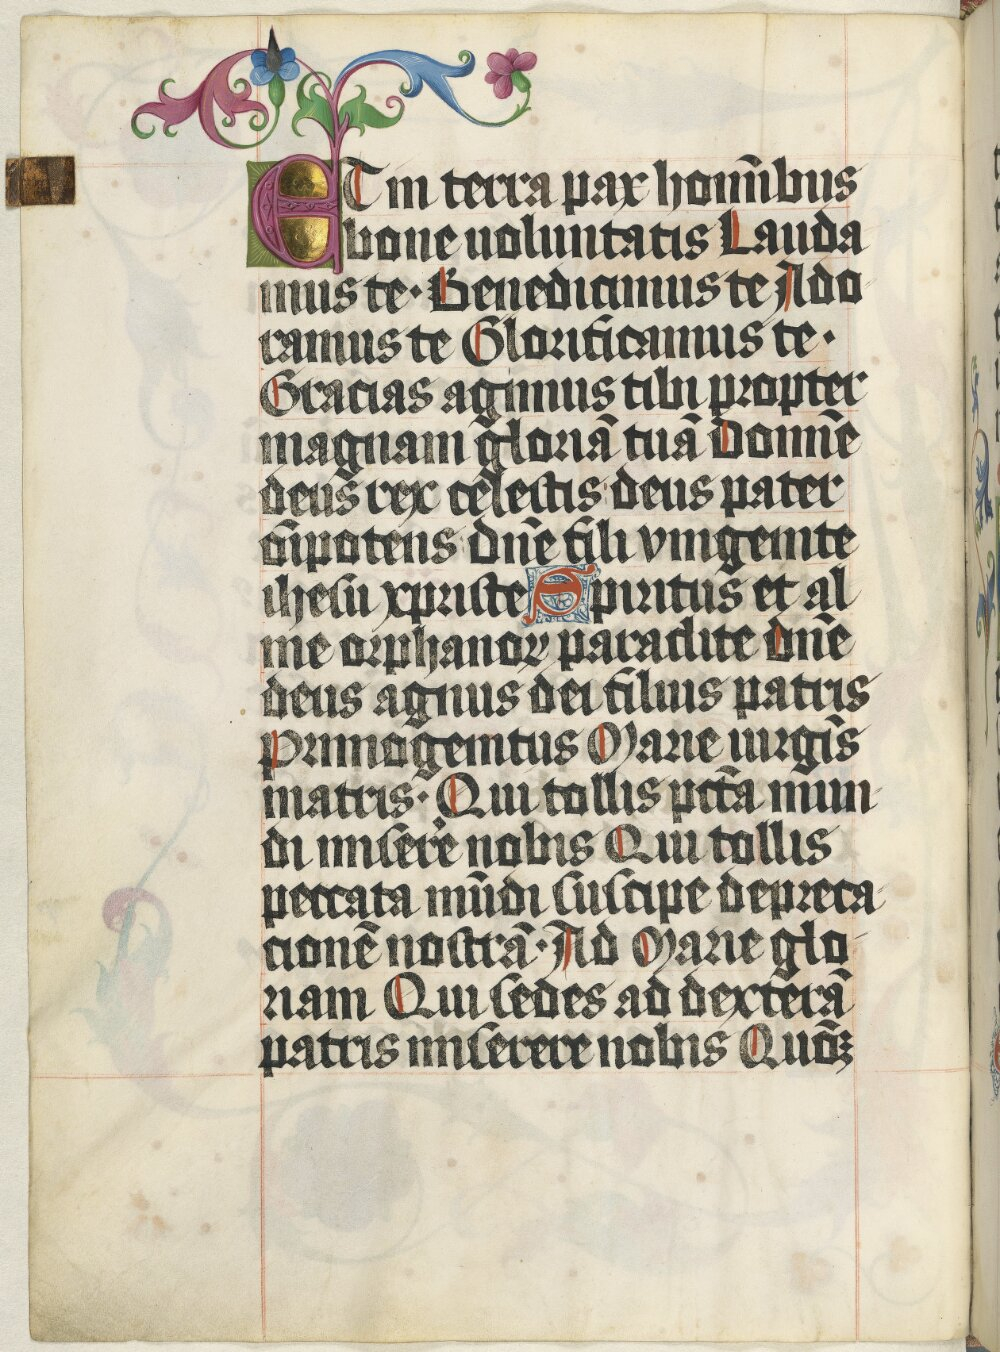 ET in terra pax homī̄bus
bone uoluntatis Lauda
mus te· Benedicimus te Ado
ramus te Glorificamus te·
Gracias agimus tibi propter
magnam gloriā tuā Domīe
deus rex celestis deus pater
oīpotens dn̄e fili vnigenite
ihesu xpriste Spiritus et al
me orphanoꝝ paraclite dn̄e
deus agnus dei filius patris
Primogenitus Marie uirgīs
matris· Qui tollis pctā̄ mun
di miserēre nobis Qui tollis
peccata mūdi suscipe depreca
cionē nostrā· Ad Marie glo
riam Qui sedes ad dexterā
patris miserere nobis Quōꝫ